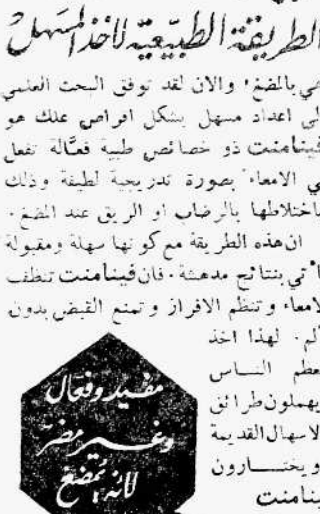 الطريقة الطبيعية لاخذ المسهل
هي بالمضغ، والان لقد توفق البحث العلمي
الى اعداد مسهل بشكل اقراص علك هو
فينامنت ذو خصائص طبية فعّالة تفعل
في الامعاء بصورة تدريجية لطيفة وذلك
باختلاطها بالرضاب او الريق عند المضغ.
ان هذه الطريقة مع كونها سهلة ومقبولة
تأتي بنتائج مدهشة. فان فينامنت تنظف
الامعاء وتنظم الافراز وتمنع القبض بدون
ألم. لهذا اخذ
معظم النــاس
يهملون طرائق
الاسهال القديمة
ويختــارون
فينامنت
مفيد وفعال
وغــير مضرّ
لانه يُمضغ